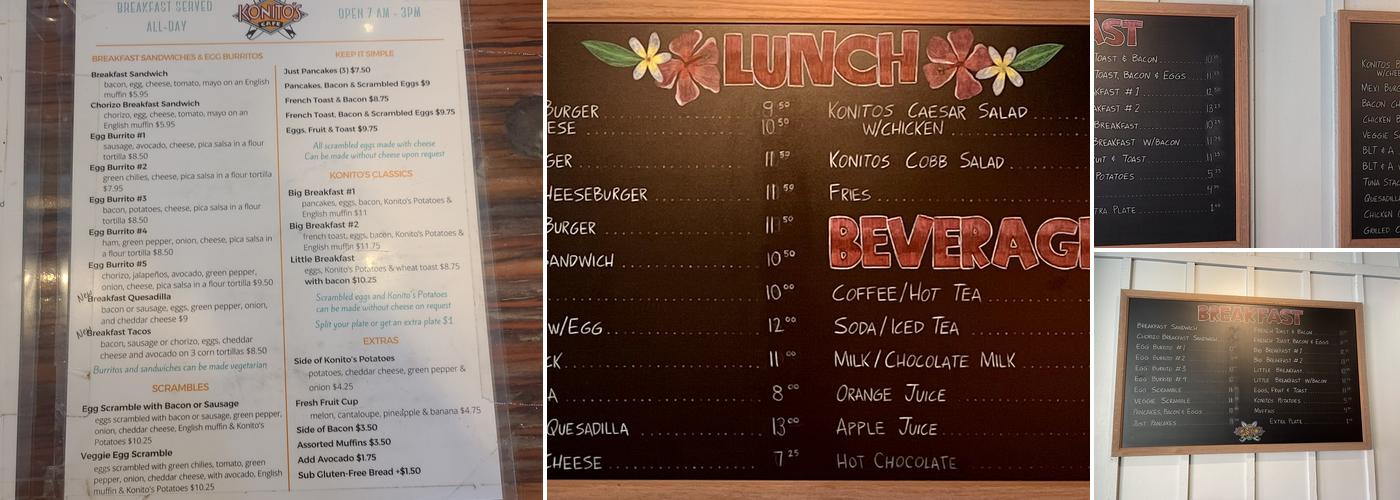 BREAKFAST SERVED
ALL-DAY
KONITO'S
CAFE
OPEN 7 AM - 3PM
BREAKFAST SANDWICHES & EGG BURRITOS
Breakfast Sandwich
bacon, egg, cheese, tomato, mayo on an English
muffin $5.95
Chorizo Breakfast Sandwich
chorizo, egg, cheese, tomato, mayo on an
English muffin $5.95
Egg Burrito #1
sausage, avocado, cheese, pica salsa in a flour
tortilla $8.50
Egg Burrito #2
green chilies, cheese, pica salsa in a flour tortilla
$7.95
Egg Burrito #3
bacon, potatoes, cheese, pica salsa in a flour
tortilla $8.50
Egg Burrito #4
ham, green pepper, onion, cheese, pica salsa in
a flour tortilla $8.50
Egg Burrito #5
chorizo, jalapeños, avocado, green pepper,
onion, cheese, pica salsa in a flour tortilla $9.50
New
Breakfast Quesadilla
bacon or sausage, eggs, green pepper, onion,
and cheddar cheese $9
New
Breakfast Tacos
bacon, sausage or chorizo, eggs, cheddar
cheese and avocado on 3 corn tortillas $8.50
Burritos and sandwiches can be made vegetarian
SCRAMBLES
Egg Scramble with Bacon or Sausage
eggs scrambled with bacon or sausage, green pepper,
onion, cheddar cheese, English muffin & Konito's
Potatoes $10.25
Veggie Egg Scramble
eggs scrambled with green chilies, tomato, green
pepper, onion, cheddar cheese, with avocado, English
muffin & Konito's Potatoes $10.25
KEEP IT SIMPLE
Just Pancakes (3) $7.50
Pancakes, Bacon & Scrambled Eggs $9
French Toast & Bacon $8.75
French Toast, Bacon & Scrambled Eggs $9.75
Eggs, Fruit & Toast $9.75
All scrambled eggs made with cheese
Can be made without cheese upon request
KONITO'S CLASSICS
Big Breakfast #1
pancakes, eggs, bacon, Konito's Potatoes &
English muffin $11
Big Breakfast #2
french toast, eggs, bacon, Konito's Potatoes &
English muffin $11.75
Little Breakfast
eggs, Konito's Potatoes & wheat toast $8.75
with bacon $10.25
Scrambled eggs and Konito's Potatoes
can be made without cheese on request
Split your plate or get an extra plate $1
EXTRAS
Side of Konito's Potatoes
potatoes, cheddar cheese, green pepper &
onion $4.25
Fresh Fruit Cup
melon, cantaloupe, pineapple & banana $4.75
Side of Bacon $3.50
Assorted Muffins $3.50
Add Avocado $1.75
Sub Gluten-Free Bread +$1.50
LUNCH
BURGER 9 50
ESE 10 50
GER 11 50
HEESEBURGER 11 50
BURGER 11 50
SANDWICH 10 50
10 00
W/EGG 12 00
CK 11 00
A 8 00
QUESADILLA 13 00
CHEESE 7 25
KONITOS CAESAR SALAD
W/CHICKEN
KONITOS COBB SALAD
FRIES
BEVERAGE
COFFEE/HOT TEA
SODA/ICED TEA
MILK/CHOCOLATE MILK
ORANGE JUICE
APPLE JUICE
HOT CHOCOLATE
AST
TOAST & BACON
TOAST, BACON & EGGS
KFAST #1
AKFAST #2
BREAKFAST
BREAKFAST W/BACON
UIT & TOAST
POTATOES
TRA PLATE
KONITOS B
W/CHEE
MEXI BURG
BACON CH
CHICKEN B
VEGGIE S
BLT & A
BLT & A
TUNA STAC
QUESADILLA
CHICKEN
GRILLED C
BREAKFAST
BREAKFAST SANDWICH
CHORIZO BREAKFAST SANDWICH
EGG BURRITO #1
EGG BURRITO #2
EGG BURRITO #3
EGG BURRITO #4
EGG SCRAMBLE
VEGGIE SCRAMBLE
PANCAKES, BACON & EGGS
JUST PANCAKES
FRENCH TOAST & BACON
FRENCH TOAST, BACON & EGGS
BIG BREAKFAST #1
BIG BREAKFAST #2
LITTLE BREAKFAST
LITTLE BREAKFAST W/BACON
EGGS, FRUIT & TOAST
KONITOS POTATOES
MUFFINS
EXTRA PLATE
KONITOS